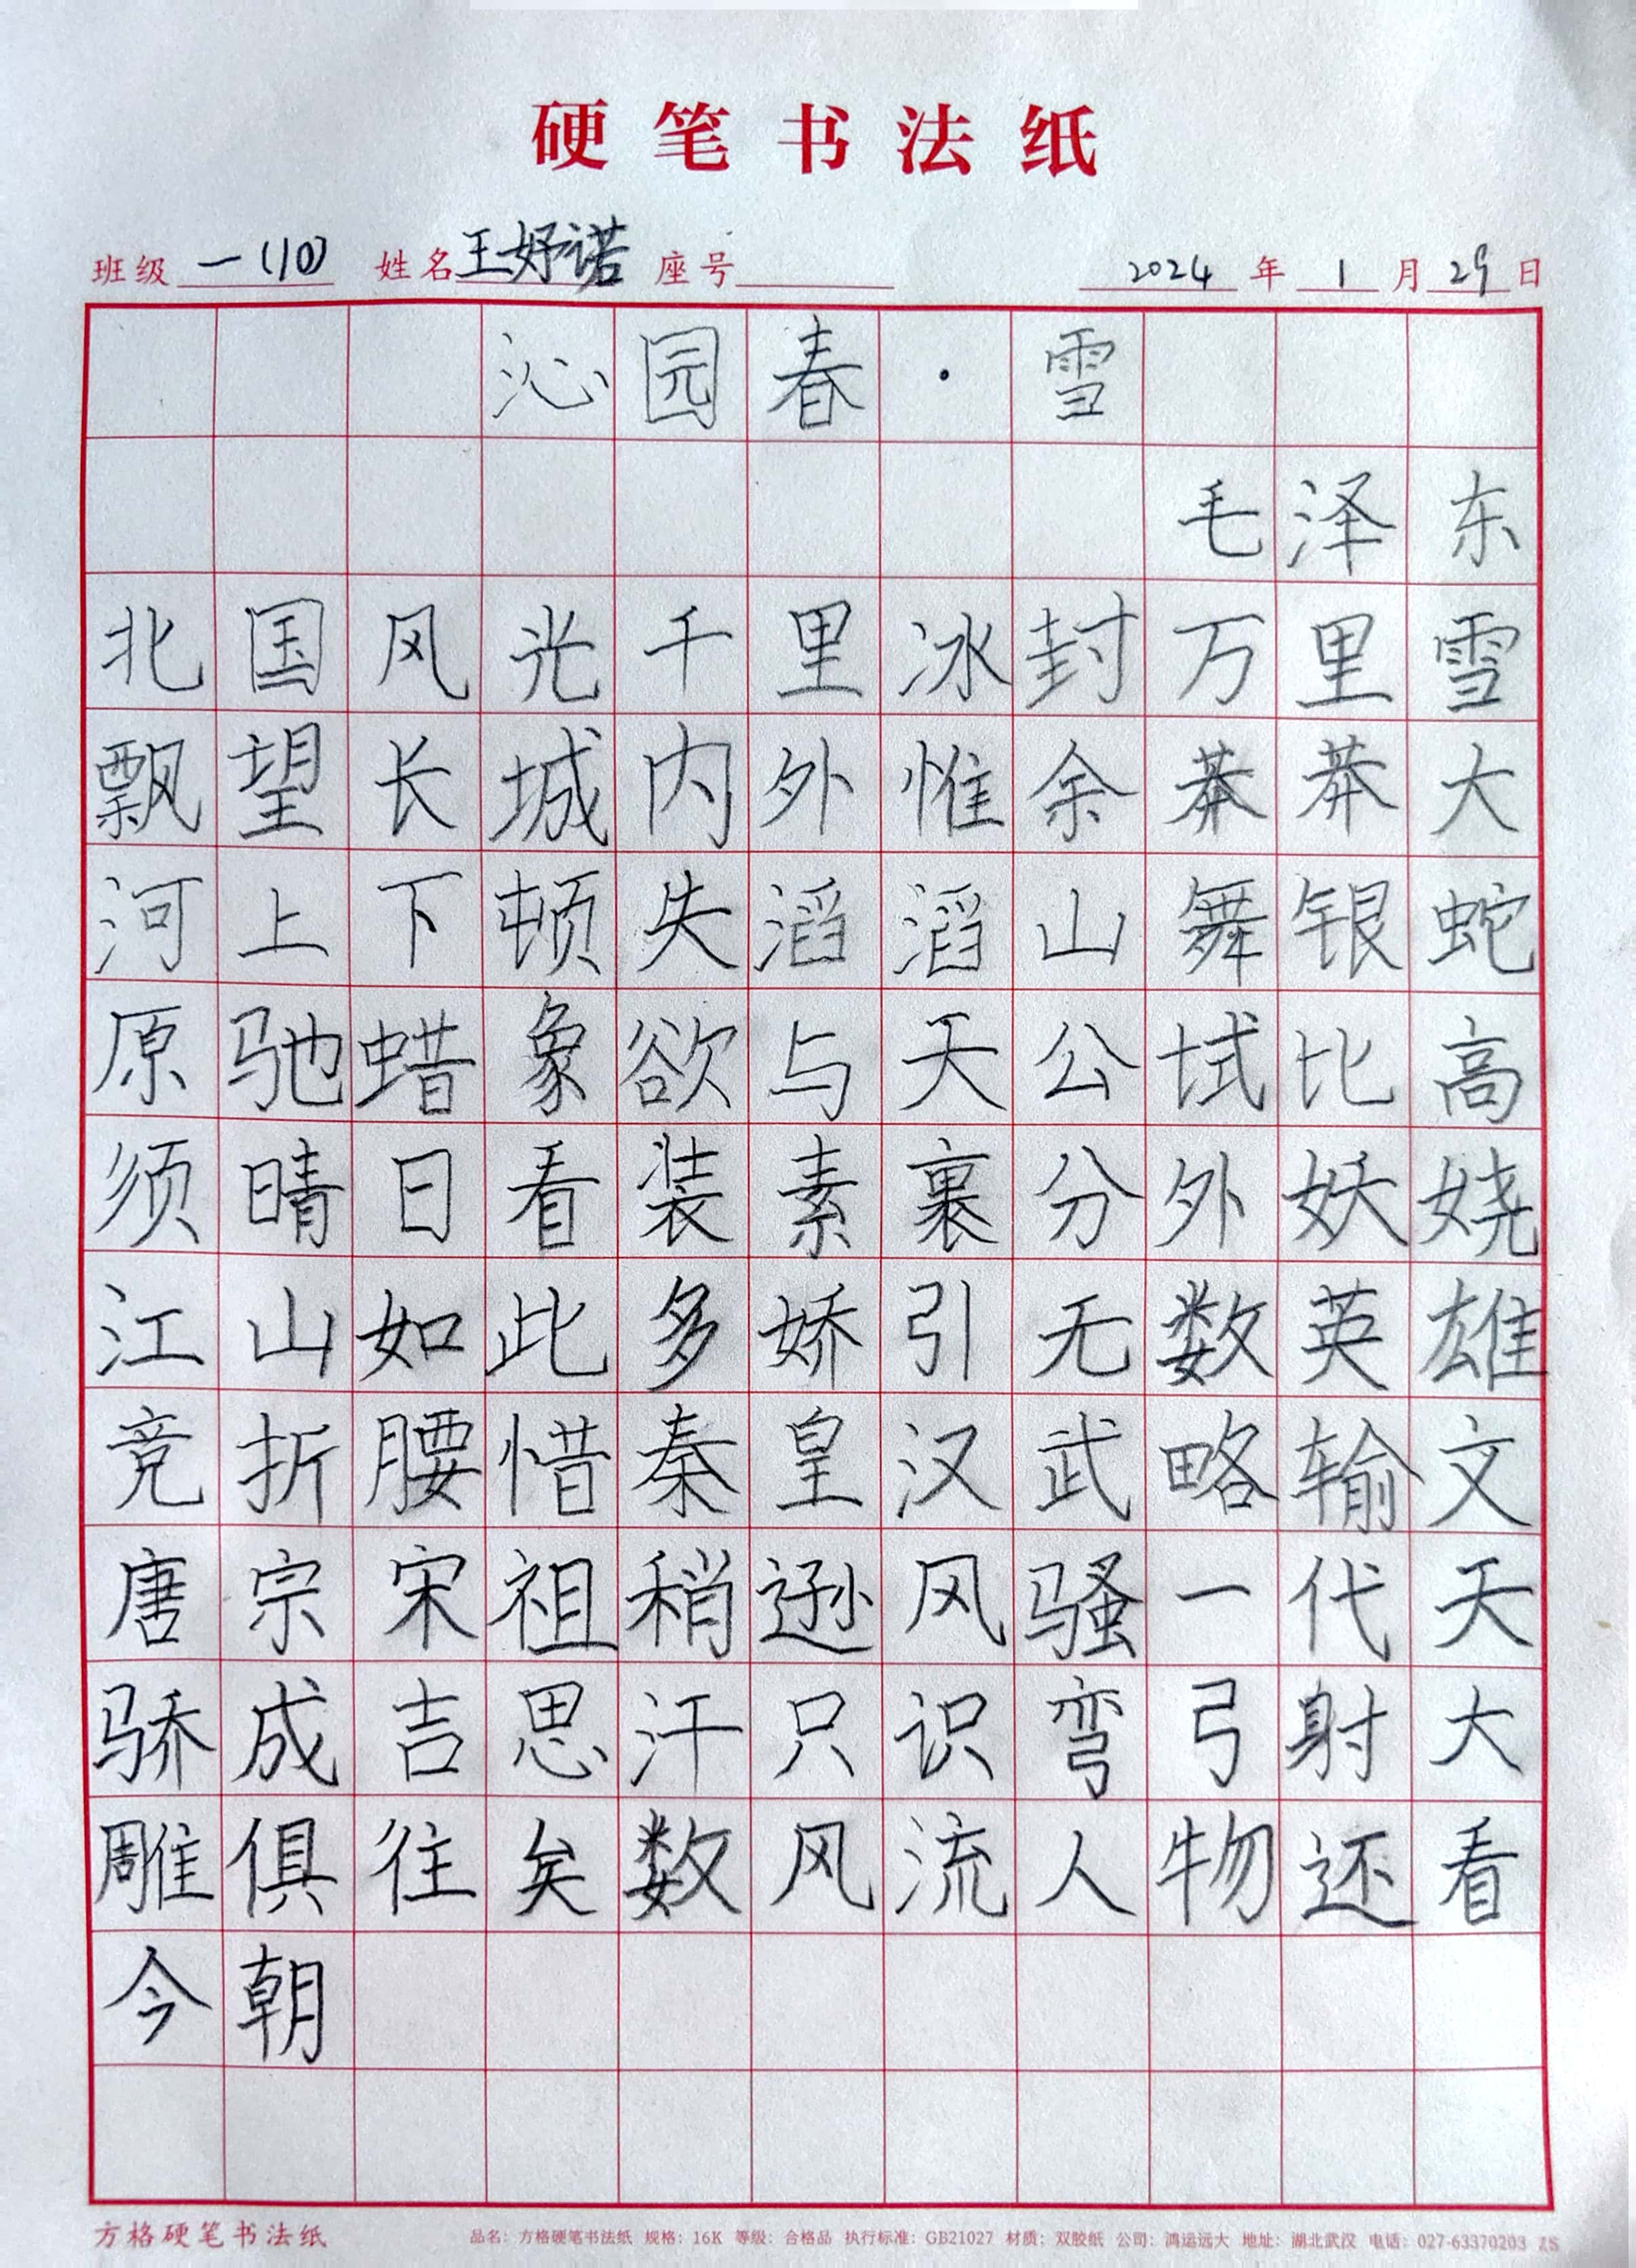 硬笔书法纸
班级 一(10) 姓名 王妤诺 座号 2024 年 1 月 29 日
沁园春·雪
毛泽东
北国风光千里冰封万里雪
飘望长城内外惟余莽莽大
河上下顿失滔滔山舞银蛇
原驰蜡象欲与天公试比高
须晴日看装素裹分外妖娆
江山如此多娇引无数英雄
竞折腰惜秦皇汉武略输文
唐宗宋祖稍逊风骚一代天
骄成吉思汗只识弯弓射大
雕俱往矣数风流人物还看
今朝
方格硬笔书法纸 品名：方格硬笔书法纸 规格：16K 等级：合格品 执行标准：GB21027 材质：双胶纸 公司：鸿运远大 地址：湖北武汉 电话：027-63370203 ZS